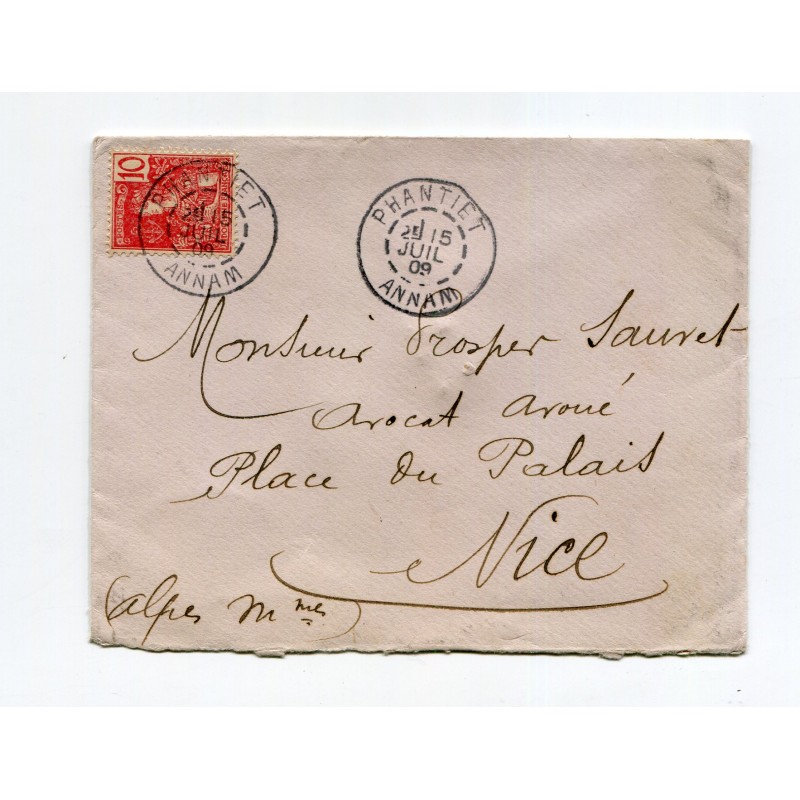 10
POSTES
PHANTIET
2E 15
JUIL
09
ANNAM
PHANTIET
2E 15
JUIL
09
ANNAM
Monsieur Prosper Sauvet
Avocat Avoué
Place du Palais
Nice
(Alpes Mmes)